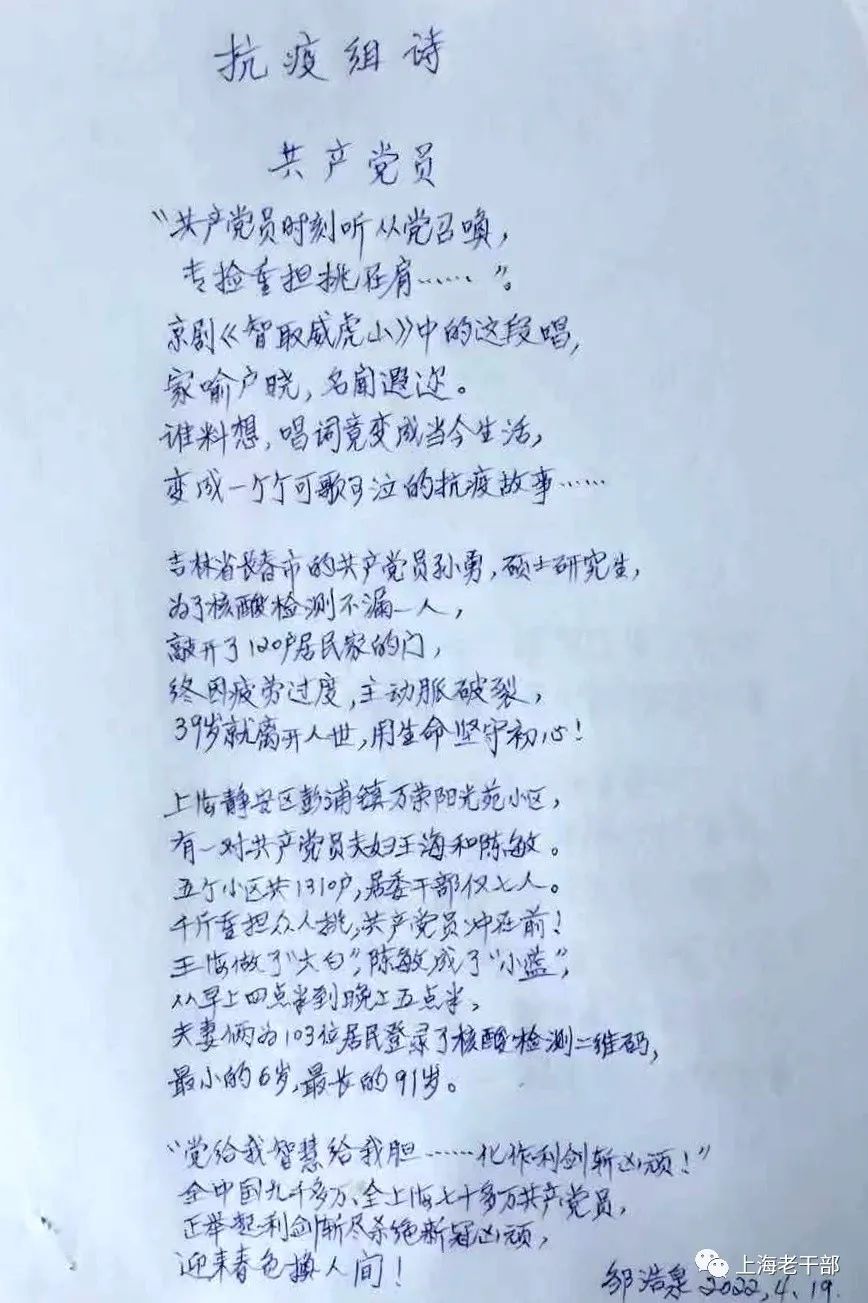 抗疫组诗
共产党员
“共产党员时刻听从党召唤，
专捡重担挑在肩……”。
京剧《智取威虎山》中的这段唱，
家喻户晓，名闻遐迩。
谁料想，唱词竟变成当今生活，
变成一个个可歌可泣的抗疫故事……
吉林省长春市的共产党员孙勇，硕士研究生，
为了核酸检测不漏一人，
敲开了120户居民家的门，
终因疲劳过度，主动脉破裂，
39岁就离开人世，用生命坚守初心！
上海静安区彭浦镇万荣阳光苑小区，
有一对共产党员夫妇王海和陈敏。
五个小区共1310户，居委干部仅七人。
千斤重担众人挑，共产党员冲在前！
王海做了“大白”，陈敏成了“小蓝”，
从早上四点半到晚上五点半，
夫妻俩为103位居民登录了核酸检测二维码，
最小的6岁，最长的91岁。
“党给我智慧给我胆……化作利剑斩凶顽！”
全中国九千多万、全上海七十多万共产党员，
正举起利剑斩尽杀绝新冠凶顽，
迎来春色换人间！
邹浩泉 2022，4.19.
上海老干部